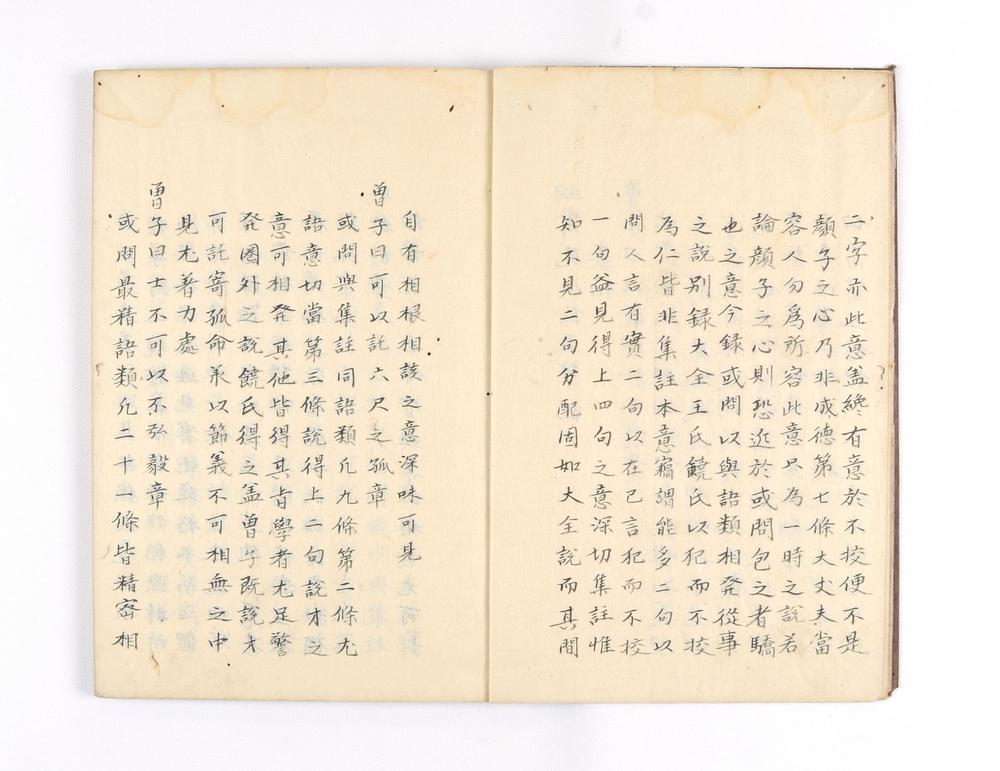 二字而此意盖纔有意於不挍便不是
顔子之心乃非成德第七條大丈夫當
容人勿爲所容此意只為一時之說若
論顔子之心則恐近於或問包之者驕
也之意今録或問以與語類相発從事
之說別録大全王氏饒氏以犯而不挍
為仁皆非集註本意竊謂能多二句以
問人言有實二句以在己言犯而不挍
一句益見得上四句之意深切集註惟
知不見二句分配固如大全說而其間
自有相根相該之意深味可見
曽子曰可以託六尺之孤章
或問與集註同語類凢九條第二條尤
語意切當第三條說得上二句說才之
意可相発其他皆得其旨學者尤足警
発圏外之說饒氏得之盖曽子既說才
可託寄孤命乘以節義不可相無之中
見尤著力處
曽子曰士不可以不弘毅章
或問最精語類凢二十一條皆精密相